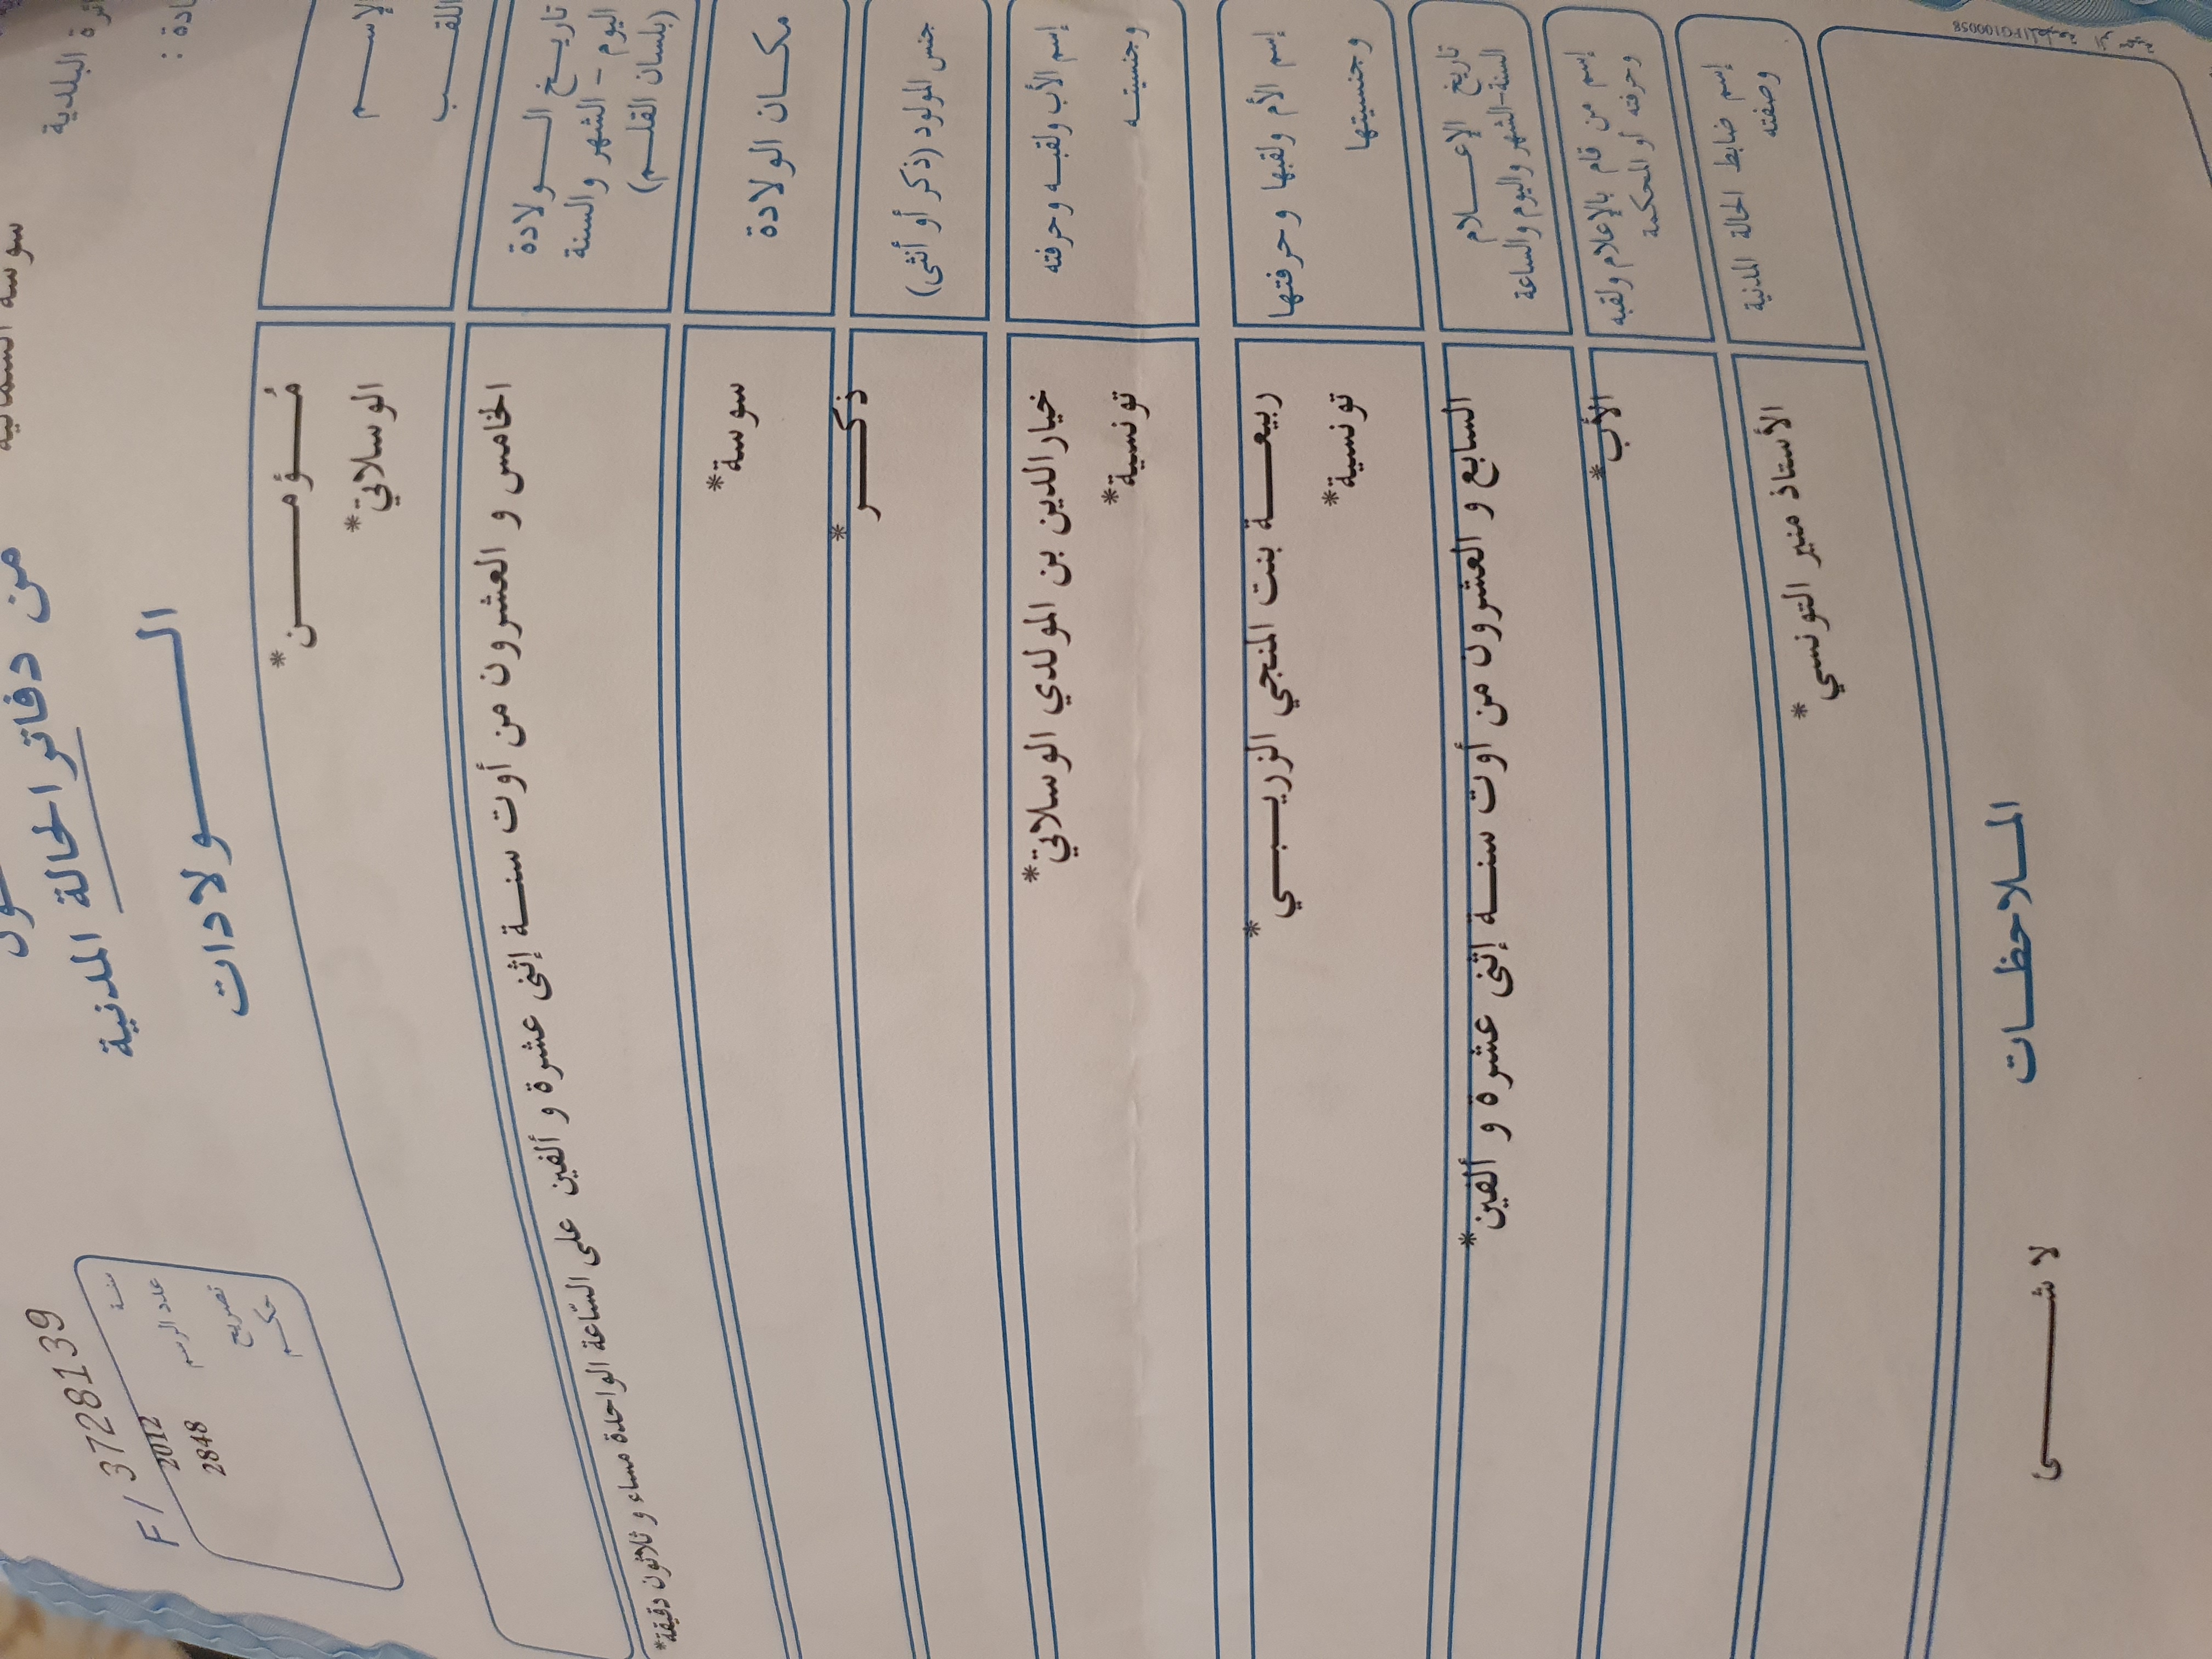 سوسة الشمالية
من دفاتر الحالة المدنية
الـولادات
F/ 3728139
سنة 2012
عدد الرسم 2848
تصريح
حكم
الإسـم
مُـؤمـن*
اللقـب
الوسلاتي*
تاريـخ الـولادة
اليوم - الشهر والسنة
(بلسان القلـم)
الخامس و العشرون من أوت سنـة إثنى عشرة و ألفين على السّاعة الواحدة مساء و ثلاثون دقيقة*
مكـان الولادة
سوسة*
جنس المولود (ذكر أو أنثى)
ذكـر*
إسم الأب ولقبـه وحرفته
خيارالدين بن المولدي الوسلاتي*
وجنسيتـه
تونسية*
إسم الأم ولقبها وحرفتها
ربيعـة بنت المنجي الزريـبـي*
وجنسيتها
تونسية*
تاريخ الإعـلام
السنة-الشهر واليوم والساعة
السابع و العشرون من أوت سنـة إثنى عشرة و ألفين*
إسم من قام بالإعلام ولقبه
وحرفته أو المحكمة
الأب*
إسم ضابط الحالة المدنية
وصفته
الأستاذ منير التونسي*
الملاحظـات
لا شـىء